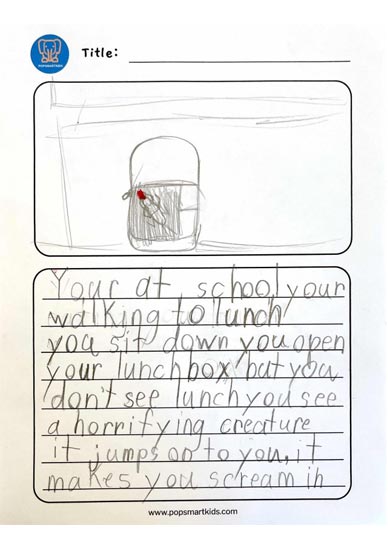 POPSMARTKIDS
Title:
Your at school your
walking to lunch
you sit down you open
your lunch box but you
don't see lunch you see
a horrifying creature
it jumps on to you, it
makes you scream in
www.popsmartkids.com